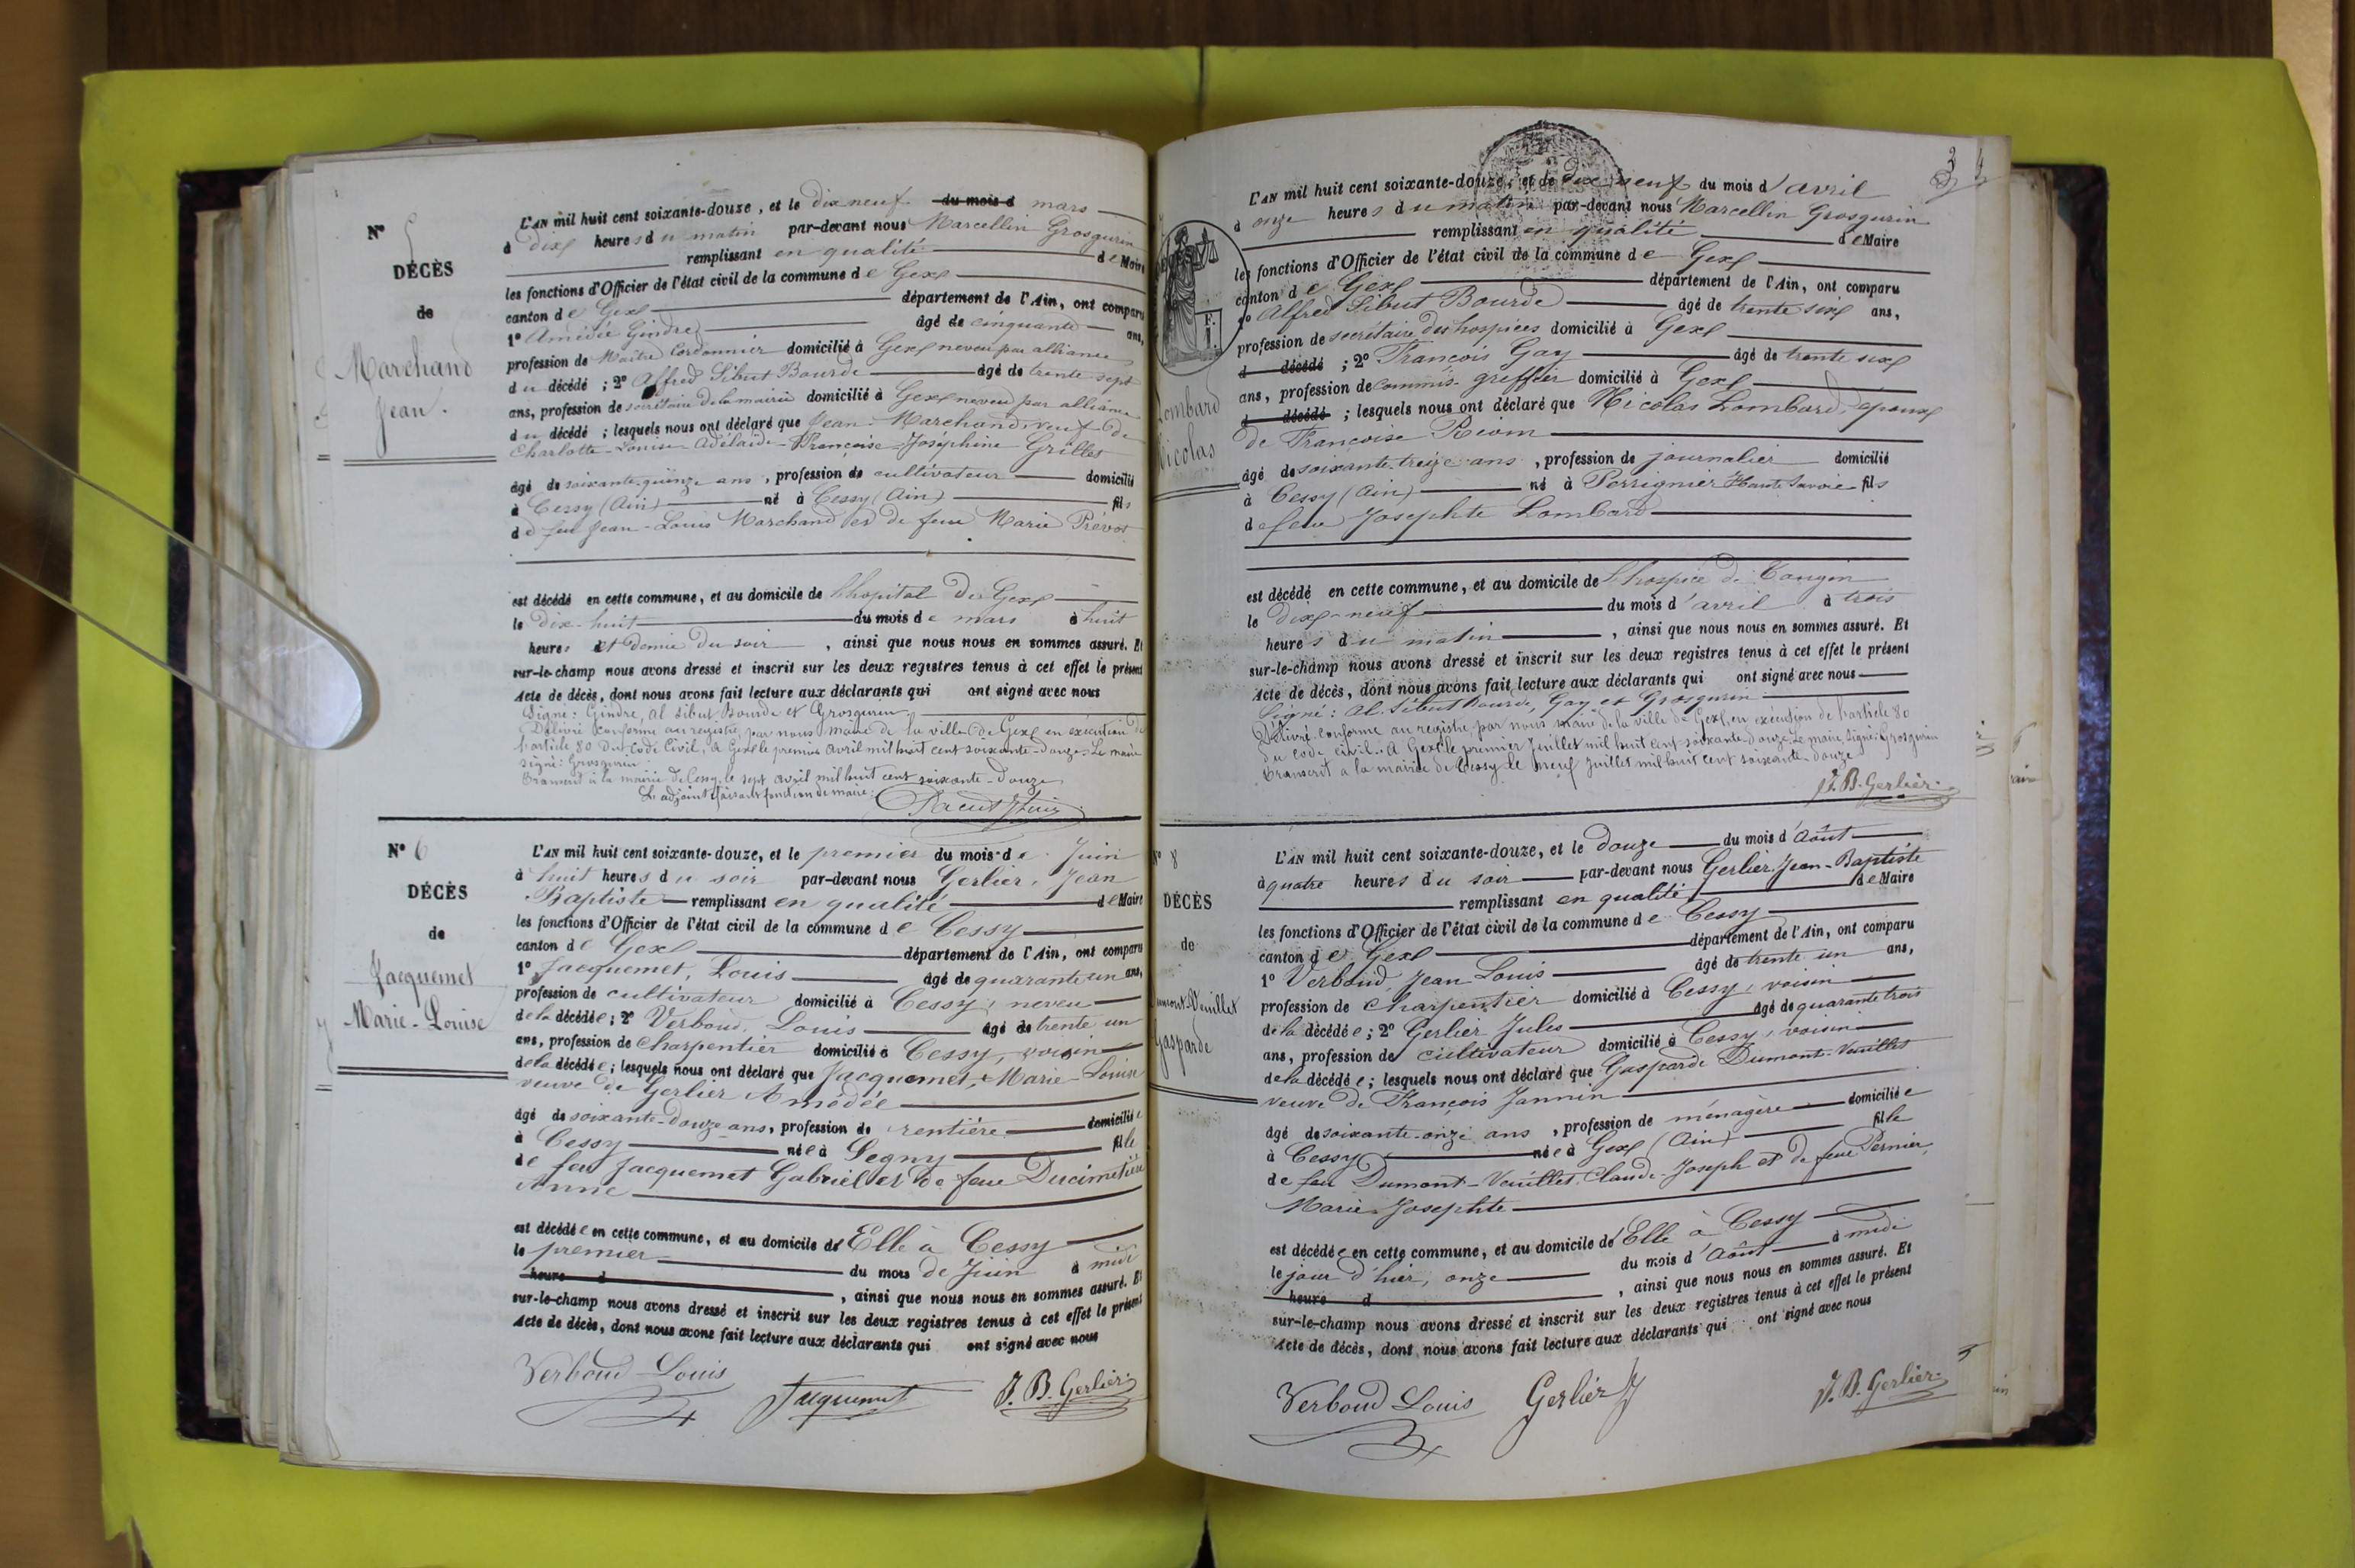 N° 5
DÉCÈS
de
Marchand
Jean.
L'AN mil huit cent soixante-douze, et le dix neuf du mois d mars
à dix heures du matin par-devant nous Marcellin Grosgurin
remplissant en qualité de Maire
les fonctions d'Officier de l'état civil de la commune de Gex
canton de Gex département de l'Ain, ont comparu
1° Amédée Gindre âgé de cinquante ans,
profession de Maître Cordonnier domicilié à Gex neveu par alliance
du décédé ; 2° Alfred Sibut Bourde âgé de trente sept
ans, profession de secrétaire de la mairie domicilié à Gex neveu par alliance
du décédé ; lesquels nous ont déclaré que Jean Marchand veuf de
Charlotte-Louise-Adélaïde-Françoise-Joséphine Grillet
âgé de soixante-quinze ans, profession de cultivateur domicilié
à Cessy (Ain) né à Cessy (Ain) fils
de feu Jean-Louis Marchand et de feue Marie Prévot
est décédé en cette commune, et au domicile de l'hopital de Gex
le dix-huit du mois de mars à huit
heures et demie du soir, ainsi que nous nous en sommes assuré. Et
sur-le-champ nous avons dressé et inscrit sur les deux registres tenus à cet effet le présent
Acte de décès, dont nous avons fait lecture aux déclarants qui ont signé avec nous
Signé: Gindre, Al Sibut Bourde et Grosgurin.
Délivré conforme au registre par nous maire de la ville de Gex en exécution de
l'article 80 du Code Civil, à Gex le premier avril mil huit cent soixante-douze. Le maire
signé: Grosgurin
Transcrit à la mairie de Cessy, le sept avril mil huit cent soixante-douze
L'adjoint faisant fonction de maire:
N° 6
DÉCÈS
de
Jacquemet
Marie-Louise
L'AN mil huit cent soixante-douze, et le premier du mois de Juin
à huit heures du soir par-devant nous Gerlier, Jean
Baptiste remplissant en qualité de Maire
les fonctions d'Officier de l'état civil de la commune de Cessy
canton de Gex département de l'Ain, ont comparu
1° Jacquemet, Louis âgé de quarante un ans,
profession de cultivateur domicilié à Cessy, neveu
de la décédée ; 2° Verboud, Louis âgé de trente un
ans, profession de charpentier domicilié à Cessy, voisin
de la décédée ; lesquels nous ont déclaré que Jacquemet, Marie-Louise
veuve de Gerlier Amédée
âgé de soixante-douze ans, profession de rentière domiciliée
à Cessy née à Segny fille
de feu Jacquemet Gabriel et de feue Ducimetière
Anne
est décédée en cette commune, et au domicile de Elle à Cessy
le premier du mois de Juin à midi
heure d , ainsi que nous nous en sommes assuré. Et
sur-le-champ nous avons dressé et inscrit sur les deux registres tenus à cet effet le présent
Acte de décès, dont nous avons fait lecture aux déclarants qui ont signé avec nous
Verboud Louis Jacquemet J. B. Gerlier
3
Lombard
Nicolas
L'AN mil huit cent soixante-douze, et le dix neuf du mois d'avril
à onze heures du matin par-devant nous Marcellin Grosgurin
remplissant en qualité de Maire
les fonctions d'Officier de l'état civil de la commune de Gex
canton de Gex département de l'Ain, ont comparu
1° Alfred Sibut Bourde âgé de trente six ans,
profession de secrétaire des hospices domicilié à Gex
d décédé ; 2° François Gay âgé de trente six
ans, profession de commis-greffier domicilié à Gex
d décédé ; lesquels nous ont déclaré que Nicolas Lombard, époux
de Françoise Riom
âgé de soixante-treize ans, profession de journalier domicilié
à Cessy (Ain) né à Perrignier Haute Savoie fils
de feue Josephte Lombard
est décédé en cette commune, et au domicile de l'hospice de Tougin
le dix-neuf du mois d'avril à trois
heures du matin, ainsi que nous nous en sommes assuré. Et
sur-le-champ nous avons dressé et inscrit sur les deux registres tenus à cet effet le présent
Acte de décès, dont nous avons fait lecture aux déclarants qui ont signé avec nous
Signé: Al. Sibut Bourde, Gay et Grosgurin
Délivré conforme au registre, par nous maire de la ville de Gex, en exécution de l'article 80
du code civil. A Gex le premier Juillet mil huit cent soixante-douze. Le maire, Signé: Grosgurin
Transcrit à la mairie de Cessy le neuf Juillet mil huit cent soixante-douze
J. B. Gerlier
N° 8
DÉCÈS
de
Dumont-Veuillet
Gasparde
L'AN mil huit cent soixante-douze, et le douze du mois d'Août
à quatre heures du soir par-devant nous Gerlier, Jean-Baptiste
remplissant en qualité de Maire
les fonctions d'Officier de l'état civil de la commune de Cessy
canton de Gex département de l'Ain, ont comparu
1° Verboud, Jean Louis âgé de trente un ans,
profession de charpentier domicilié à Cessy, voisin
de la décédée ; 2° Gerlier Jules âgé de quarante trois
ans, profession de cultivateur domicilié à Cessy, voisin
de la décédée ; lesquels nous ont déclaré que Gasparde Dumont-Veuillet
veuve de François Jannin
âgé de soixante-onze ans, profession de ménagère domiciliée
à Cessy née à Gex (Ain) fille
de feu Dumont-Veuillet, Claude-Joseph et de feue Pernier,
Marie-Josephte
est décédée en cette commune, et au domicile de Elle à Cessy
le jour d'hier, onze du mois d'Août à midi
heure d , ainsi que nous nous en sommes assuré. Et
sur-le-champ nous avons dressé et inscrit sur les deux registres tenus à cet effet le présent
Acte de décès, dont nous avons fait lecture aux déclarants qui ont signé avec nous
Verboud Louis Gerlier J J. B. Gerlier